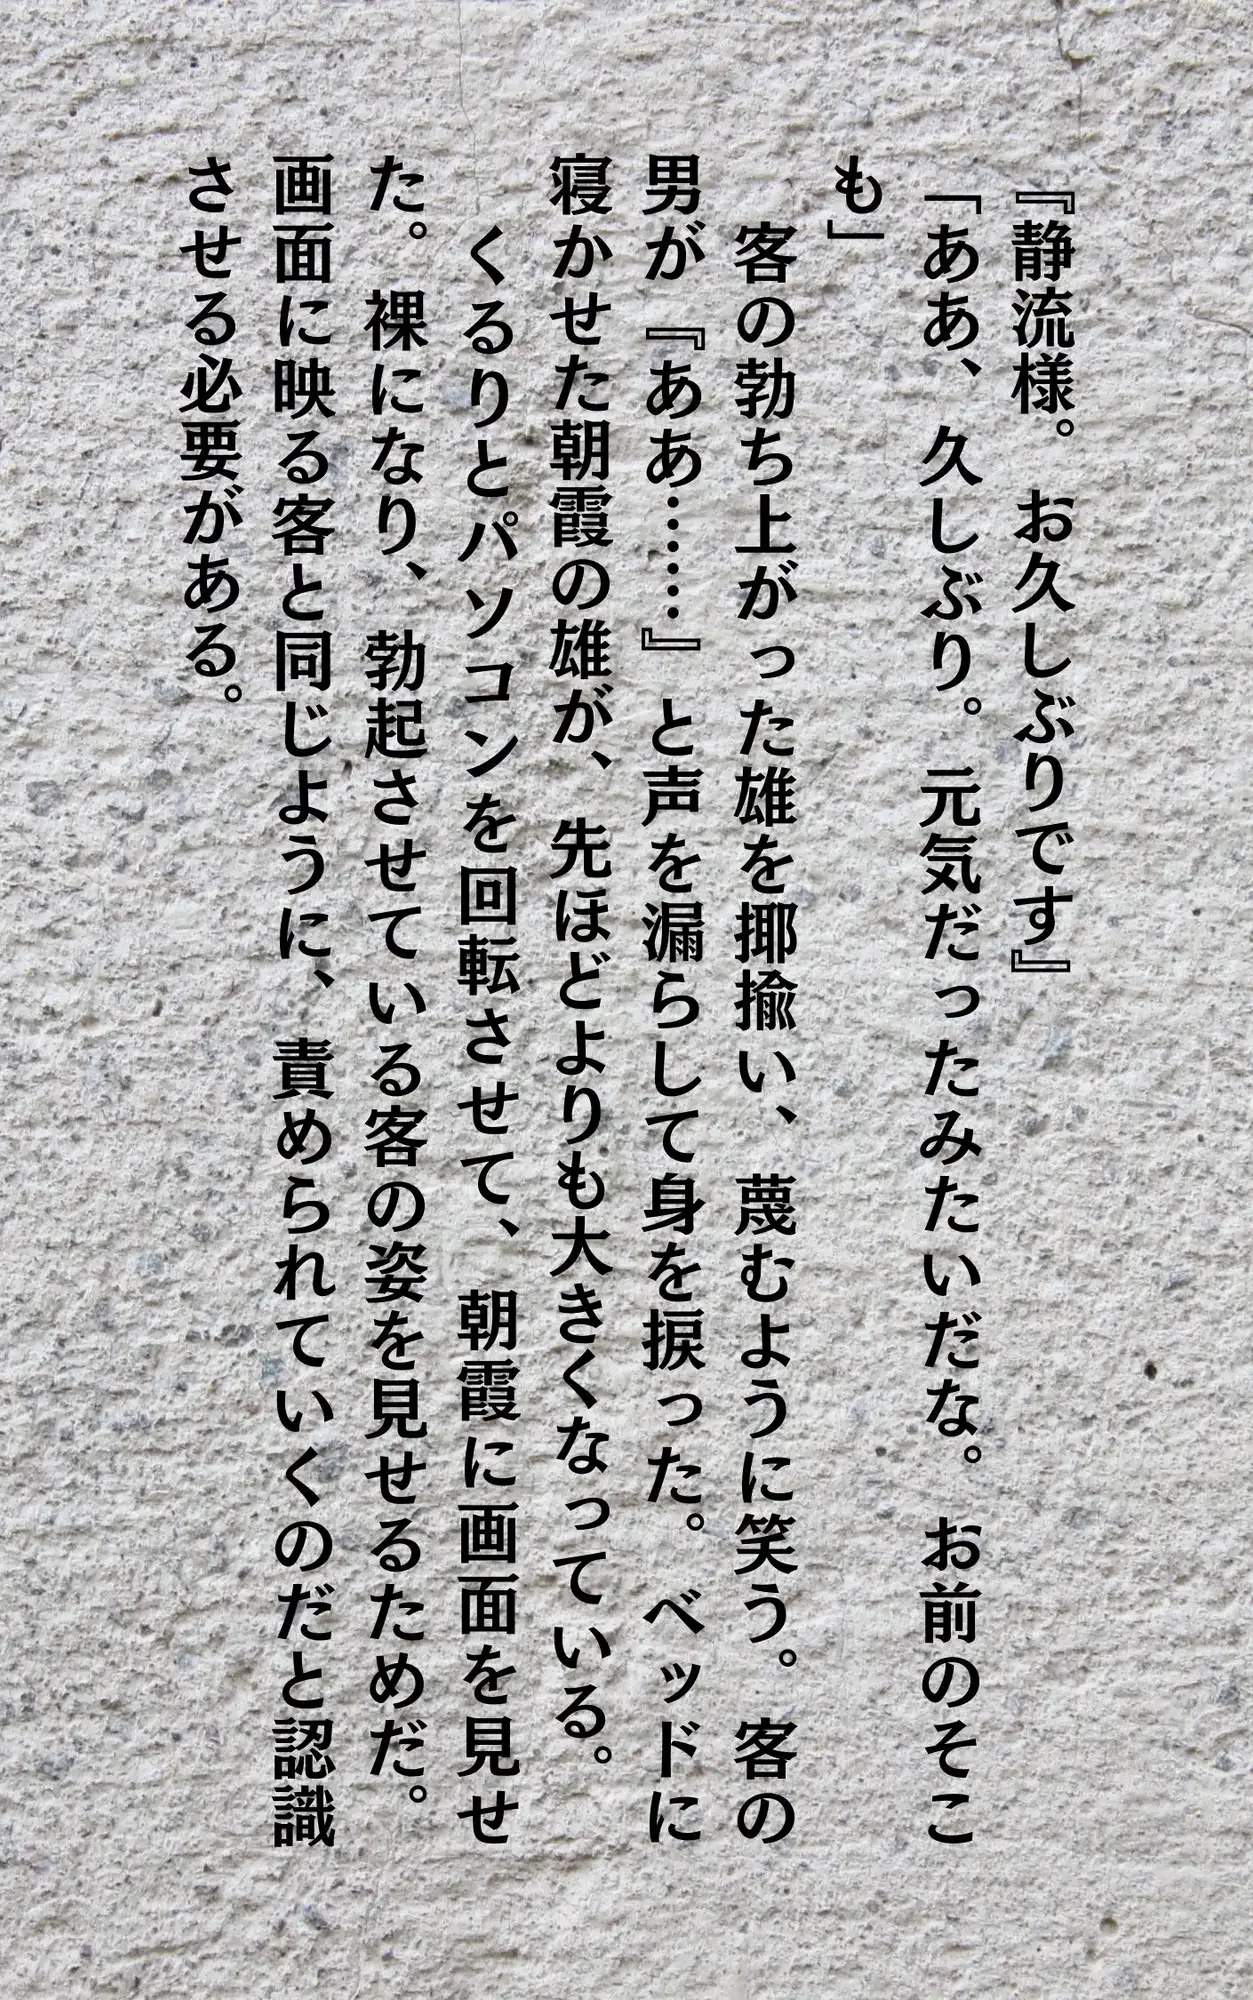 『静流様。お久しぶりです』
「ああ、久しぶり。元気だったみたいだな。お前のそこ
も」
　客の勃ち上がった雄を揶揄い、蔑むように笑う。客の
男が『ああ……』と声を漏らして身を捩った。ベッドに
寝かせた朝霞の雄が、先ほどよりも大きくなっている。
　くるりとパソコンを回転させて、朝霞に画面を見せ
た。裸になり、勃起させている客の姿を見せるためだ。
画面に映る客と同じように、責められていくのだと認識
させる必要がある。